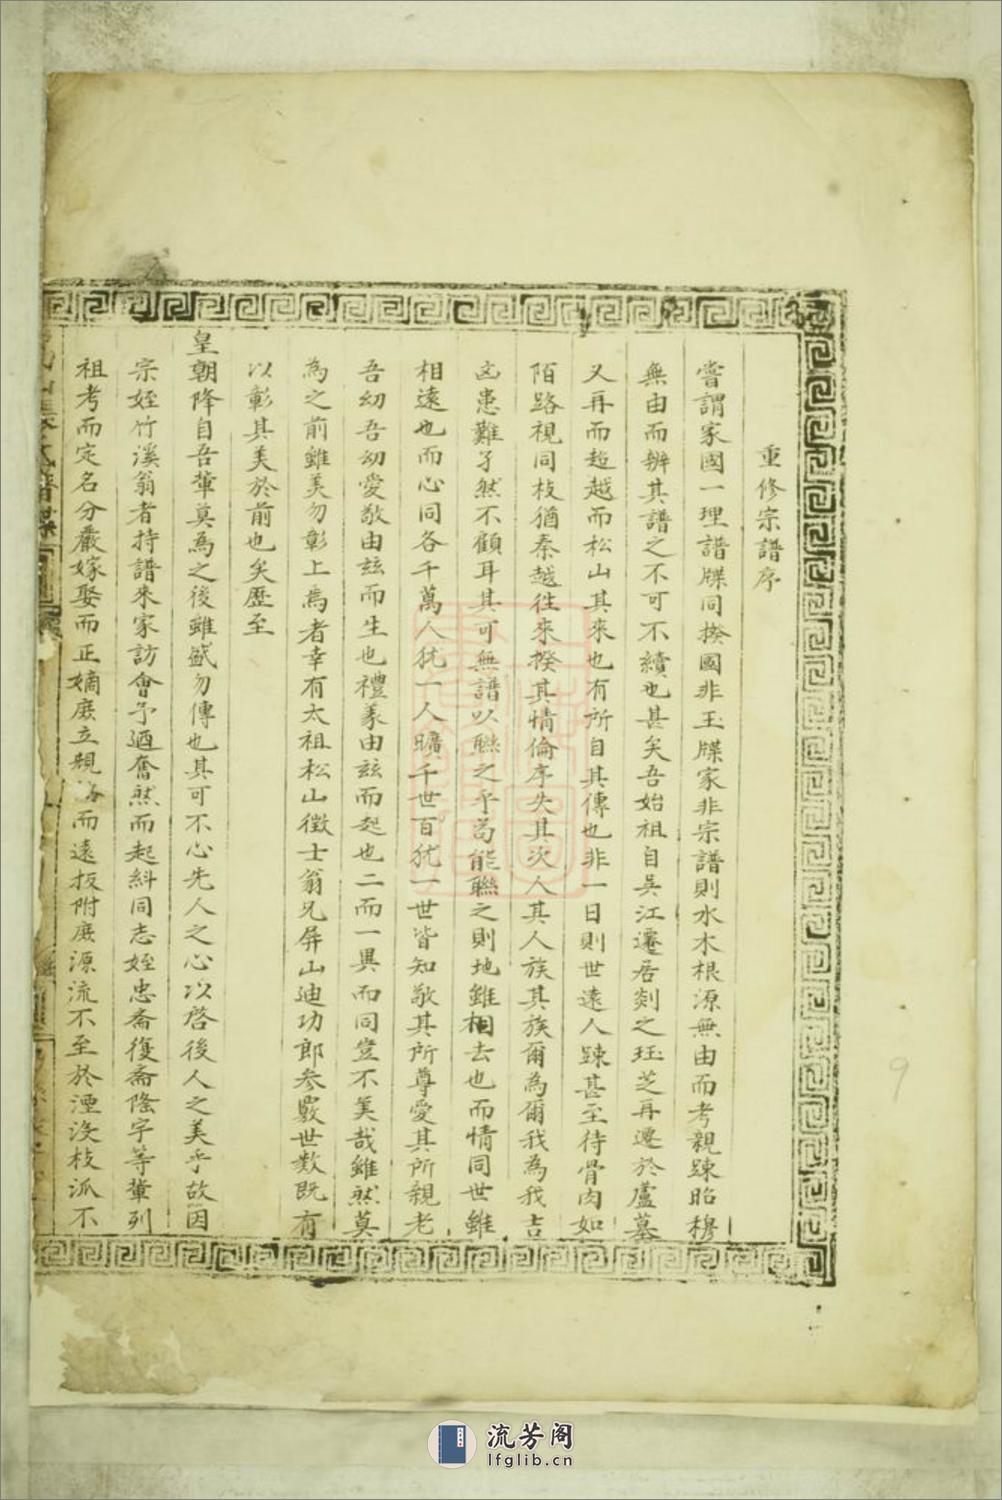 重修宗譜序
嘗謂家國一理譜牒同揆國非玉牒家非宗譜則水木根源無由而考親踈昭穆
無由而辨其譜之不可不續也甚矣吾始祖自吳江遷居剡之珏芝再遷於廬墓
又再而超越而松山其來也有所自其傳也非一日則世遠人踈甚至待骨肉如
陌路視同枝猶秦越徃來揆其情倫序失其次人其人族其族爾為爾我為我吉
凶患難孑然不顧耳其可無譜以聯之乎苟能聯之則地雖相去也而情同世雖
相遠也而心同各千萬人犹一人曠千世百犹一世皆知敬其所尊愛其所親老
吾幼吾幼愛敬由玆而生也禮義由玆而起也二而一異而同豈不美哉雖然莫
為之前雖美勿彰上焉者幸有太祖松山徴士翁兄屏山迪功郎参嚴世数既有
以彰其美於前也矣歷至
皇朝降自吾輩莫為之後雖盛勿傳也其可不心先人之心以啓後人之美乎故因
宗姪竹溪翁者持譜來家訪會予廼奮然而起糾同志姪忠斋復斋隆宇等輩列
祖考而定名分嚴嫁娶而正嫡庻立規而遠扳附庻源流不至於湮没枝派不
氏譜牒
流芳阁
lfglib.cn
9